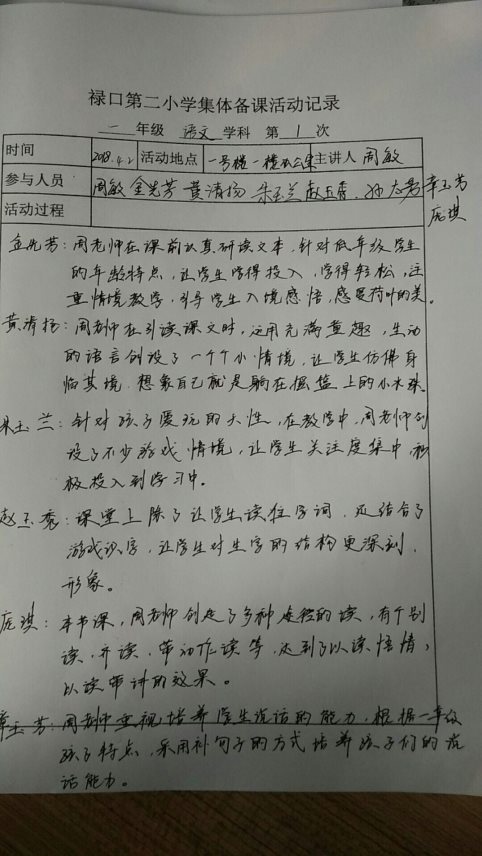 禄口第二小学集体备课活动记录
一 年级 语文 学科 第 1 次
时间 2018.4.2 活动地点 一号楼一楼办公室 主讲人 周敏
参与人员 周敏 金先芳 黄清扬 朱玉兰 赵玉秀 孙志勇 章玉芳
庞琪
活动过程
金先芳：周老师在课前认真研读文本，针对低年级学生
的年龄特点，让学生学得投入，学得轻松，注
重情境教学，引导学生入境感悟，感受荷叶的美。
黄清扬：周老师在引读课文时，运用充满童趣，生动
的语言创设了一个个小情境，让学生仿佛身
临其境，想象自己就是躺在摇篮上的小水珠。
朱玉兰：针对孩子爱玩的天性，在教学中，周老师创
设了不少游戏情境，让学生关注度集中，积
极投入到学习中。
赵玉秀：课堂上除了让学生读住字词，还结合了
游戏识字，让学生对生字的结构更深刻，
形象。
庞琪：本节课，周老师创造了多种途径的读，有个别
读，齐读，带动作读等，达到了以读悟情，
以读带讲的效果。
章玉芳：周老师重视培养学生说话的能力，根据一年级
孩子特点，采用补句子的方式培养孩子们的说
话能力。